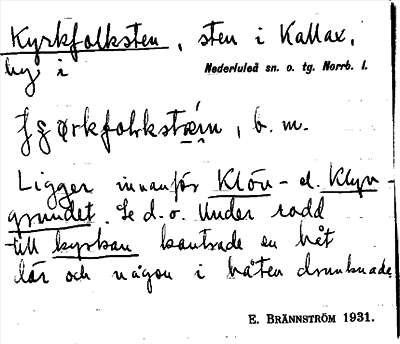 Kyrkfolksten, sten i Kallax,
by i
Nederluleå sn. o. tg. Norrb. l.
b. m.
Ligger innanför Klöv- el. Klyv-
grundet. Se d. o. Under rodd
till kyrkan kantrade en båt
där och någon i båten drunknade.
E. BRÄNNSTRÖM 1931.